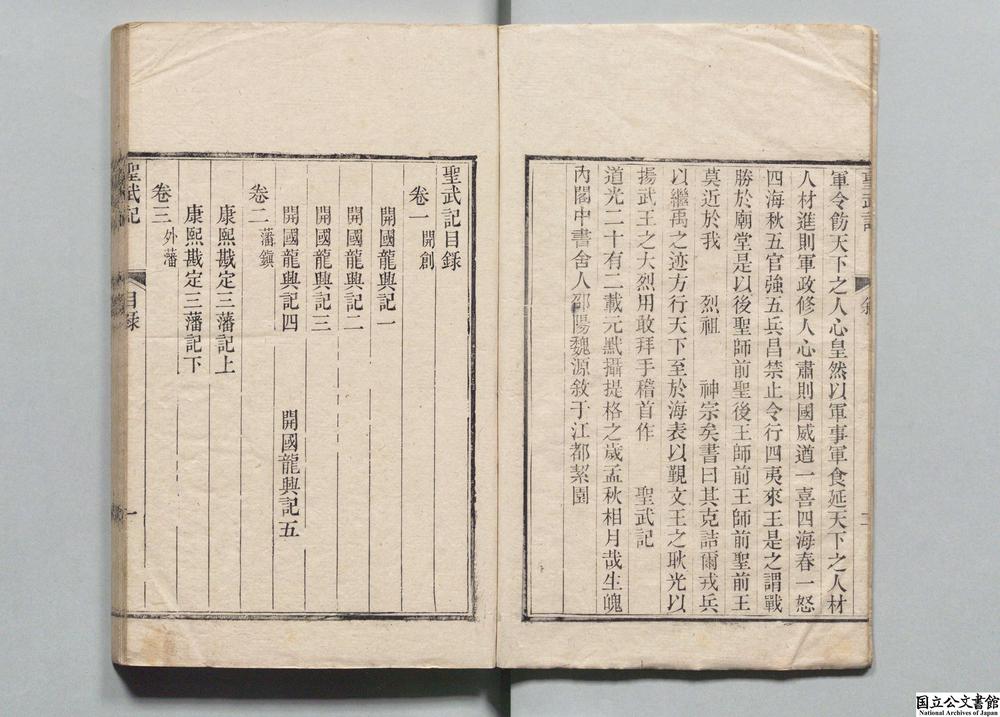 軍令飭天下之人心皇然以軍事軍食延天下之人材
人材進則軍政修人心肅則國威遒一喜四海春一怒
四海秋五官強五兵昌禁止令行四夷來王是之謂戰
勝於廟堂是以後聖師前聖後王師前王師前聖前王
莫近於我　烈祖　神宗矣書曰其克詰爾戎兵
以繼禹之迹方行天下至於海表以覲文王之耿光以
揚武王之大烈用敢拜手稽首作　聖武記
道光二十有二載元黓攝提格之歲孟秋相月哉生魄
內閣中書舍人邵陽魏源敘于江都絜園
聖武記目錄
卷一　開創
開國龍興記一
開國龍興記二
開國龍興記三
開國龍興記四　開國龍興記五
卷二　藩鎮
康熙戡定三藩記上
康熙戡定三藩記下
卷三　外藩
聖武記　目錄　一
国立公文書館
National Archives of Japan